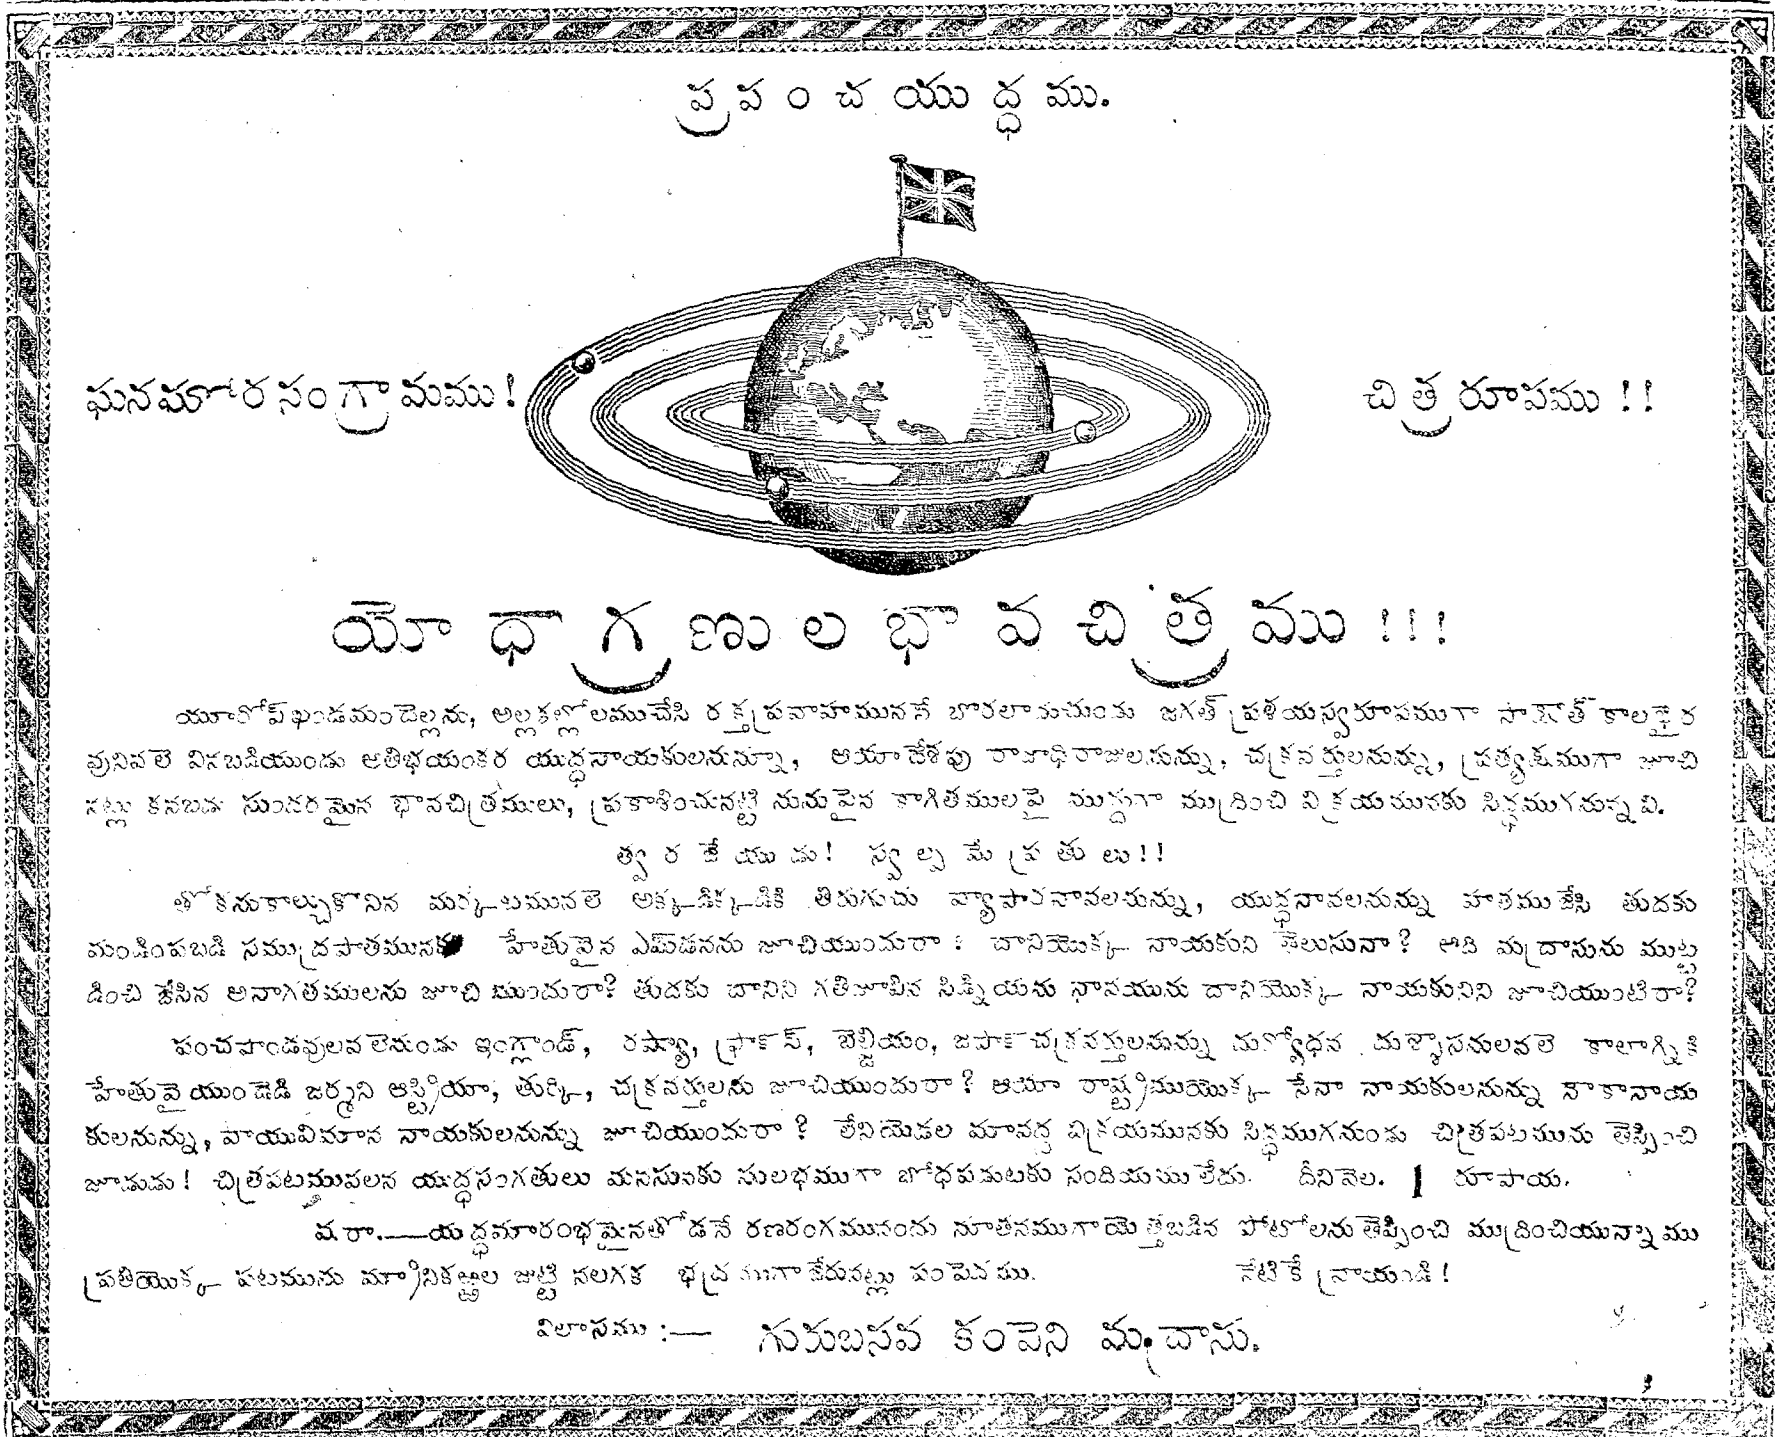 ప్రపంచయుద్ధము.
ఘనఘోరసంగ్రామము!
చిత్రరూపము!!
యోధాగ్రణులభావచిత్రము!!!
యూరోప్‌ఖండమందెల్లను, అల్లకల్లోలముచేసి రక్తప్రవాహముననే బొరలాడుచుండు జగత్ప్రళయస్వరూపముగా సాక్షాత్ కాలభైర
వునివలె వినబడియుండు అతిభయంకర యుద్ధనాయకులనున్నూ, ఆయాదేశపు రాజాధిరాజులనున్ను, చక్రవర్తులనున్ను, ప్రత్యక్షముగా జూచి
నట్లు కనబడు సుందరమైన భావచిత్రములు, ప్రకాశించునట్టి నునుపైన కాగితములపై ముద్దుగా ముద్రించి విక్రయమునకు సిద్ధముగనున్నవి.
త్వరజేయుడు! స్వల్పమే ప్రతులు!!
తోకనుకాల్చుకొనిన మర్కటమువలె అక్కడిక్కడికి తిరుగుచు వ్యాపారనావలనున్ను, యుద్ధనావలనున్ను హతముజేసి తుదకు
మండింపబడి సముద్రపాతమునకు హేతువైన ఎమ్‌డనును జూచియుందురా? దానియొక్క నాయకుని తెలుసునా? అది మద్రాసును ముట్ట
డించి జేసిన అనాగతములను జూచి యుందురా? తుదకు దానిని గతిజూపిన సిడ్నియను నావయును దానియొక్క నాయకునిని జూచియుంటిరా?
పంచపాండవులవలెనుండు ఇంగ్లాండ్, రష్యా, ఫ్రాన్స్, బెల్జియం, జపాన్ చక్రవర్తులనున్ను దుర్యోధన దుశ్శాసనులవలె కాలాగ్నికి
హేతువైయుండెడి జర్మని ఆస్ట్రియా, తుర్కి, చక్రవర్తులను జూచియుందురా? ఆయా రాష్ట్రముయొక్క సేనా నాయకులనున్ను నౌకానాయ
కులనున్ను, వాయువిమాన నాయకులనున్ను జూచియుందురా? లేనియెడల మావద్ద విక్రయమునకు సిద్ధముగనుండు చిత్రపటమును తెప్పించి
జూడుడు! చిత్రపటమువలన యుద్ధసంగతులు మనసునకు సులభముగా బోధపడుటకు సందియములేదు. దీనివెల. 1 రూపాయ.
షరా.—యుద్ధమారంభమైనతోడనే రణరంగమునందు నూతనముగాయెత్తబడిన పోటోలనుతెప్పించి ముద్రించియున్నాము
ప్రతియొక్క పటమును మ్రానికఱ్ఱల జుట్టి నలగక భద్రముగాజేరునట్లు పంపెదము. నేటికే వ్రాయండి!
విలాసము :— గురుబసవ కంపెని మద్రాసు.